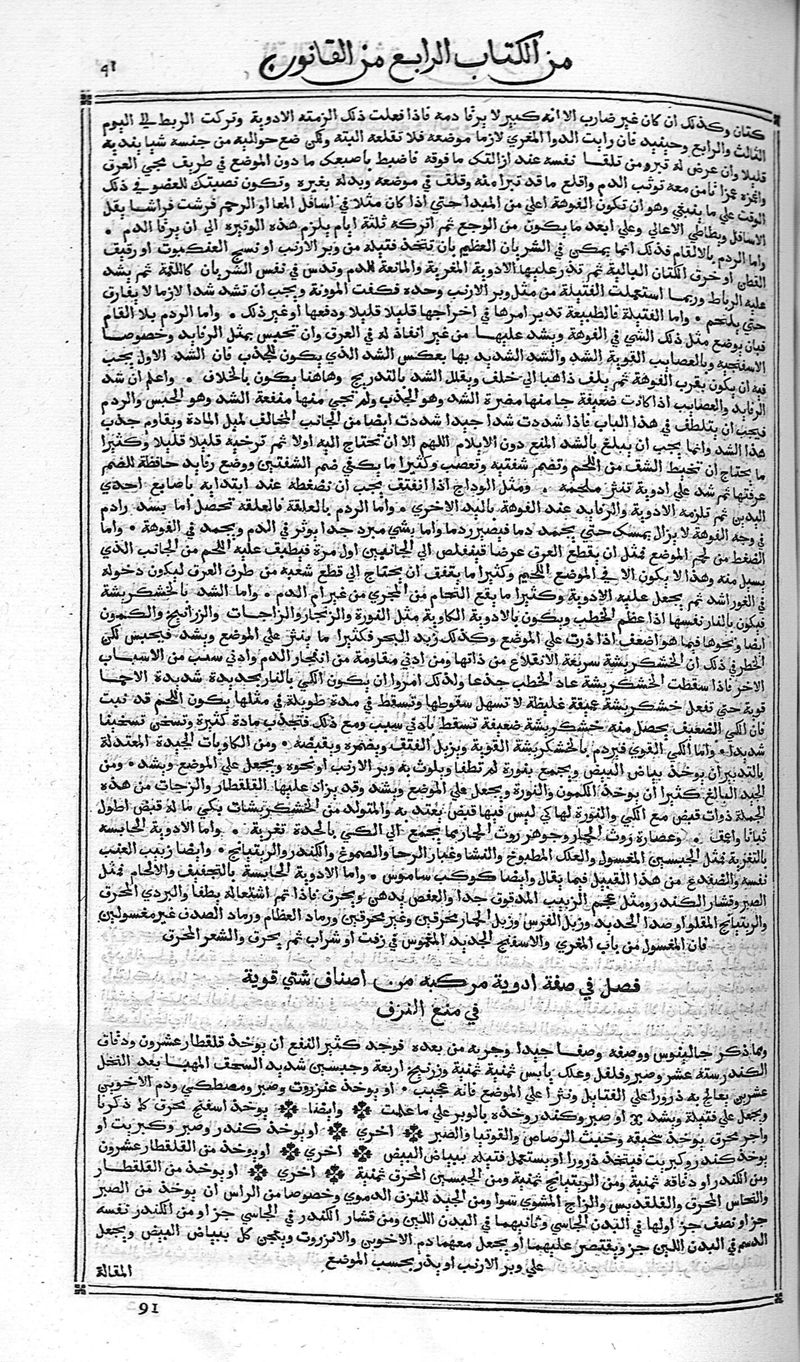 من الكتاب الرابع من القانون
٩١
كتان وكذلك ان كان غير ضارب الا انه كبير لا يرقا دمه فاذا فعلت ذلك الزمته الادوية وتركت الربط الي اليوم
الثالث والرابع وحينيذ فان رايت الدوا المغري لازما موضعه فلا تقلعه البته ولكن ضع حواليه من جنسه شيا بنديه
قليلا وان عرض له تبرو من تلقا نفسه عند ازالتك ما فوقه فاضبط باصبعك ما دون الموضع في طريف مجي العرق
واغمزه غمزا تامن معه توثب الدم واقلع ما قد تبرا منه وقلف في موضعه وبدله بغيره وتكون نصبتك للعضو في ذلك
الوقت علي ما ينبغي وهو ان تكون الفوهة اعلي من المبدا حتي اذا كان مثلا في اسافل المعا او الرحم فرشت فراشا يقل
الاسافل ويطاطي الاعالي وعلي ابعد ما يكون من الوجع ثم اتركه ثلثة ايام يلزم هذه الوتيره الي ان يرقا الدم
واما الردم بالالقام فذلك انما يمكن في الشريان العظيم بان تتخذ فتيلة من وبر الارنب او نسج العنكبوت او رقيف
القطن او خرق الكتان البالية ثم تذر عليها الادوية المغرية والمانعة للدم وتدس في نفس الشريان كاللقمة ثم يشد
عليه الرباط وربما استعملت الفتيلة من مثل وبر الارنب وحده فكفت الموونة ويجب ان تشد شدا لازما لا يفارق
حتي يلتحم واما الفتيلة فالطبيعة تدبر امرها في اخراجها قليلا قليلا ودفعها او غير ذلك واما الردم بلا القام
فبان يوضع مثل ذلك الشي في الفوهة ويشد عليها من غير انفاذ له في العرق وان تحبس بمثل الرفايد وخصوصا
الاسفنجيه وبالعصايب القوية الشد والشد الشديد بها بعكس الشد الذي يكون للجذب فان الشد الاول يجب
فيه ان يكون بقرب الفوهة ثم يلف ذاهبا الي خلف ويقلل الشد بالتدريج وهاهنا يكون بالخلاف واعلم ان شد
الرفايد والعصايب اذا كانت ضعيفة جا منها مضرة الشد وهو الجذب ولم تجي منها منفعة الشد وهو الحبس والردم
فيجب ان يتلطف في هذا الباب فاذا شددت شدا جيدا شددت ايضا من الجانب المخالف لميل المادة ويقاوم جذب
هذا الشد وانما يجب ان يبلغ بالشد المنع دون الايلام اللهم الا ان تحتاج اليه اولا ثم ترخيه قليلا قليلا وكثيرا
ما يحتاج ان تخيط الشف من اللحم وتضم شفتيه وتعصب وكثيرا ما يكفي ضم الشفتين ووضع رفايد حافظة للضم
عرفتها ثم شد علي ادوية تنثر ملحمة ومثل الوداج اذا انفتف يجب ان تضغطه عند ابتدايه باصابع احدي
اليدين ثم تلزمه الادوية والرفايد عند الفوهة باليد الاخري واما الردم بالعلقة فالعلقة تحصل اما بسد رادم
في وجه الفوهة لا يزال يمسك حتي يجمد دما فيصير ردما واما بشي مبرد جدا يوثر في الدم ويجمد في الفوهة واما
الضغط من لحم الموضع فمثل ان يقطع العرق عرضا فيتقلص الي الجانبين اول مرة فينطيف عليه اللحم من الجانب الذي
يسيل منه وهذا لا يكون الا في الموضع اللحيم وكثيرا ما يتفف ان يحتاج الي قطع شعبه من طرف العرق ليكون دخوله
في الغور اشد ثم يجعل عليه الادوية وكثيرا ما يقع التحام من المجري من غير ام الدم واما الشد بالخشكريشة
فيكون بالنار نفسها اذا عظم الخطب ويكون بالادوية الكاوية مثل النورة والزنجار والزاجات والزرانيخ والكمون
ايضا ونحوها فيما هو اضعف اذا ذرت علي الموضع وكذلك زبد البحر فكثيرا ما ينثر علي الموضع ويشد فيحبس لكن
الخطر في ذلك ان الخشكريشة سريعة الانقلاع من ذاتها ومن ادني مقاومة من انفجار الدم وادني سبب من الاسباب
الاخر فاذا سقطت الخشكريشة عاد الخطب جذعا ولذلك امروا ان يكون الكي بالنار بحديدة شديدة الاحما
قوية حتي تفعل خشكريشة عميقة غليظة لا تسهل سقوطها وتسقط في مدة طويلة في مثلها يكون اللحم قد نبت
فان الكي الضعيف يحصل منه خشكريشة ضعيفة تسقط بادني سبب ومع ذلك فتجذب مادة كثيرة وتسخن تسخينا
شديدا واما الكي القوي فيردم بالخشكريشة القوية ويزيل الفتف ويضمره ويقبضه ومن الكاويات الجيدة المعتدلة
بالتدبير ان يوخذ بياض البيض ويجمع بنورة لم تطفا ويلوث به وبر الارنب او نحوه ويجعل علي الموضع ويشد ومن
الجيد البالغ كثيرا ان يوخذ الكمون والنورة ويجعل علي الموضع ويشد وقد يزاد عليها القلقطار والزاجات من هذه
الجملة ذوات قبض مع الكي والنورة لها كي ليس فيها قبض يعتد به والمتولد من الخشكريشات بكي ما له قبض اطول
ثباتا واعمف وعصارة روث الحمار وجوهر روث الحمار بما يجمع الي الكي بالحدة تغرية واما الادوية الحابسه
بالتغرية فمثل الجبسين المغسول والعلك المطبوخ والنشا وغبار الرحا والصموغ والكندر والريتيانج وايضا زبيب العنب
نفسه والضفدع من هذا القبيل فيما يقال وايضا كوكب ساموس واما الادوية الحابسة بالتجفيف والالحام فمثل
الصبر وقشار الكندر ومثل عجم الزبيب المدقوق جدا والعفص يدهن ويحرق فاذا تم اشتعاله يطفا والبردي المحرق
والريتيانج المقلو او صدا الحديد وزبل الفرس وزبل الحمار محرقين وغير محرقين ورماد العظام ورماد الصدف غير مغسولين
فان المغسول من باب المغري والاسفنج الجديد المغموس في زفت او شراب ثم يحرق والشعر المحرق
فصل في صفة ادوية مركبه من اصناف شتي قوية
في منع النزف
ومما ذكر جالينوس ووصفه وصفا جيدا وجربه من بعده فوجد كثير النفع ان يوخذ قلقطار عشرون ودقاق
الكندر ستة عشر وصبر وفلفل وعلك يابس ثمنية ثمنية وزرنيخ اربعة وجبسين شديد السحف المهيا بعد النخل
عشرين يعالج به ذرورا علي الفتايل ونثرا علي الموضع فانه عجيب او يوخذ عنزروت وصبر ومصطكي ودم الاخوين
ويجعل علي فتيلة ويشد او صبر وكندر وخذه بالوبر علي ما علمت وايضا يوخذ اسفنج محرق كما ذكرنا
واجر محرق يوخذ سحيقه وخبث الرصاص والتوتيا والصبر اخري او يوخذ كندر وصبر وكبريت او
يوخذ كندر وكبريت فيتخذ ذرورا او يستعمل فتيله ببياض البيض اخري او يوخذ من القلقطار عشرون
ومن الكندر او دقاقه ثمنية ومن الريتيانج ثمنية ومن الجبسين المحرق ثمنية اخري او يوخذ من القلقطار
والنحاس المحرق والقلقديس والزاج المشوي سوا ومن الجيد للنزف الدموي وخصوصا من الراس ان يوخذ من الصبر
جز او نصف جز اولها في البدن الجاسي وثانيهما في البدن اللين ومن قشار الكندر في الجاسي جز او من الكندر نفسه
الدسم في البدن اللين جز ويقتصر عليهما او يجعل معهما دم الاخوين والانزروت ويعجن كل ببياض البيض ويجعل
علي وبر الارنب او يذر بحسب الموضع
المقالة
91